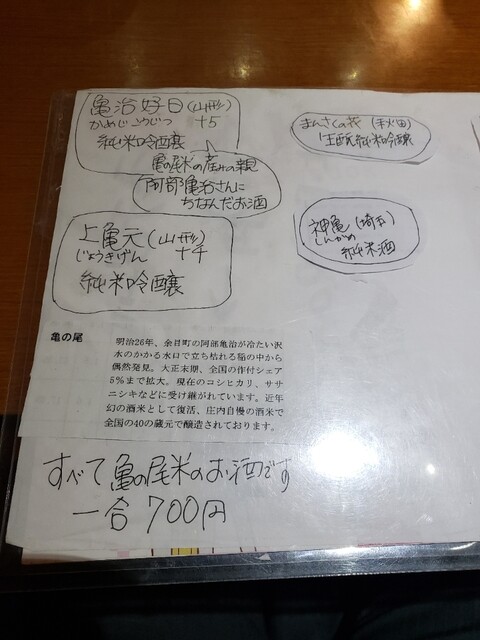 亀治好日(山形)
かめじこうじつ +5
純米吟醸
亀の尾米の産みの親
阿部亀治さんに
ちなんだお酒
上亀元(山形)
じょうきげん +4
純米吟醸
まんさくの花 (秋田)
生酛純米吟醸
神亀(埼玉)
しんかめ
純米酒
亀の尾
明治26年、余目町の阿部亀治が冷たい沢
水のかかる水口で立ち枯れる稲の中から
偶然発見。大正末期、全国の作付シェア
5%まで拡大。現在のコシヒカリ、ササ
ニシキなどに受け継がれています。近年
幻の酒米として復活、庄内自慢の酒米で
全国の40の蔵元で醸造されております。
すべて亀の尾米のお酒です
一合 700円